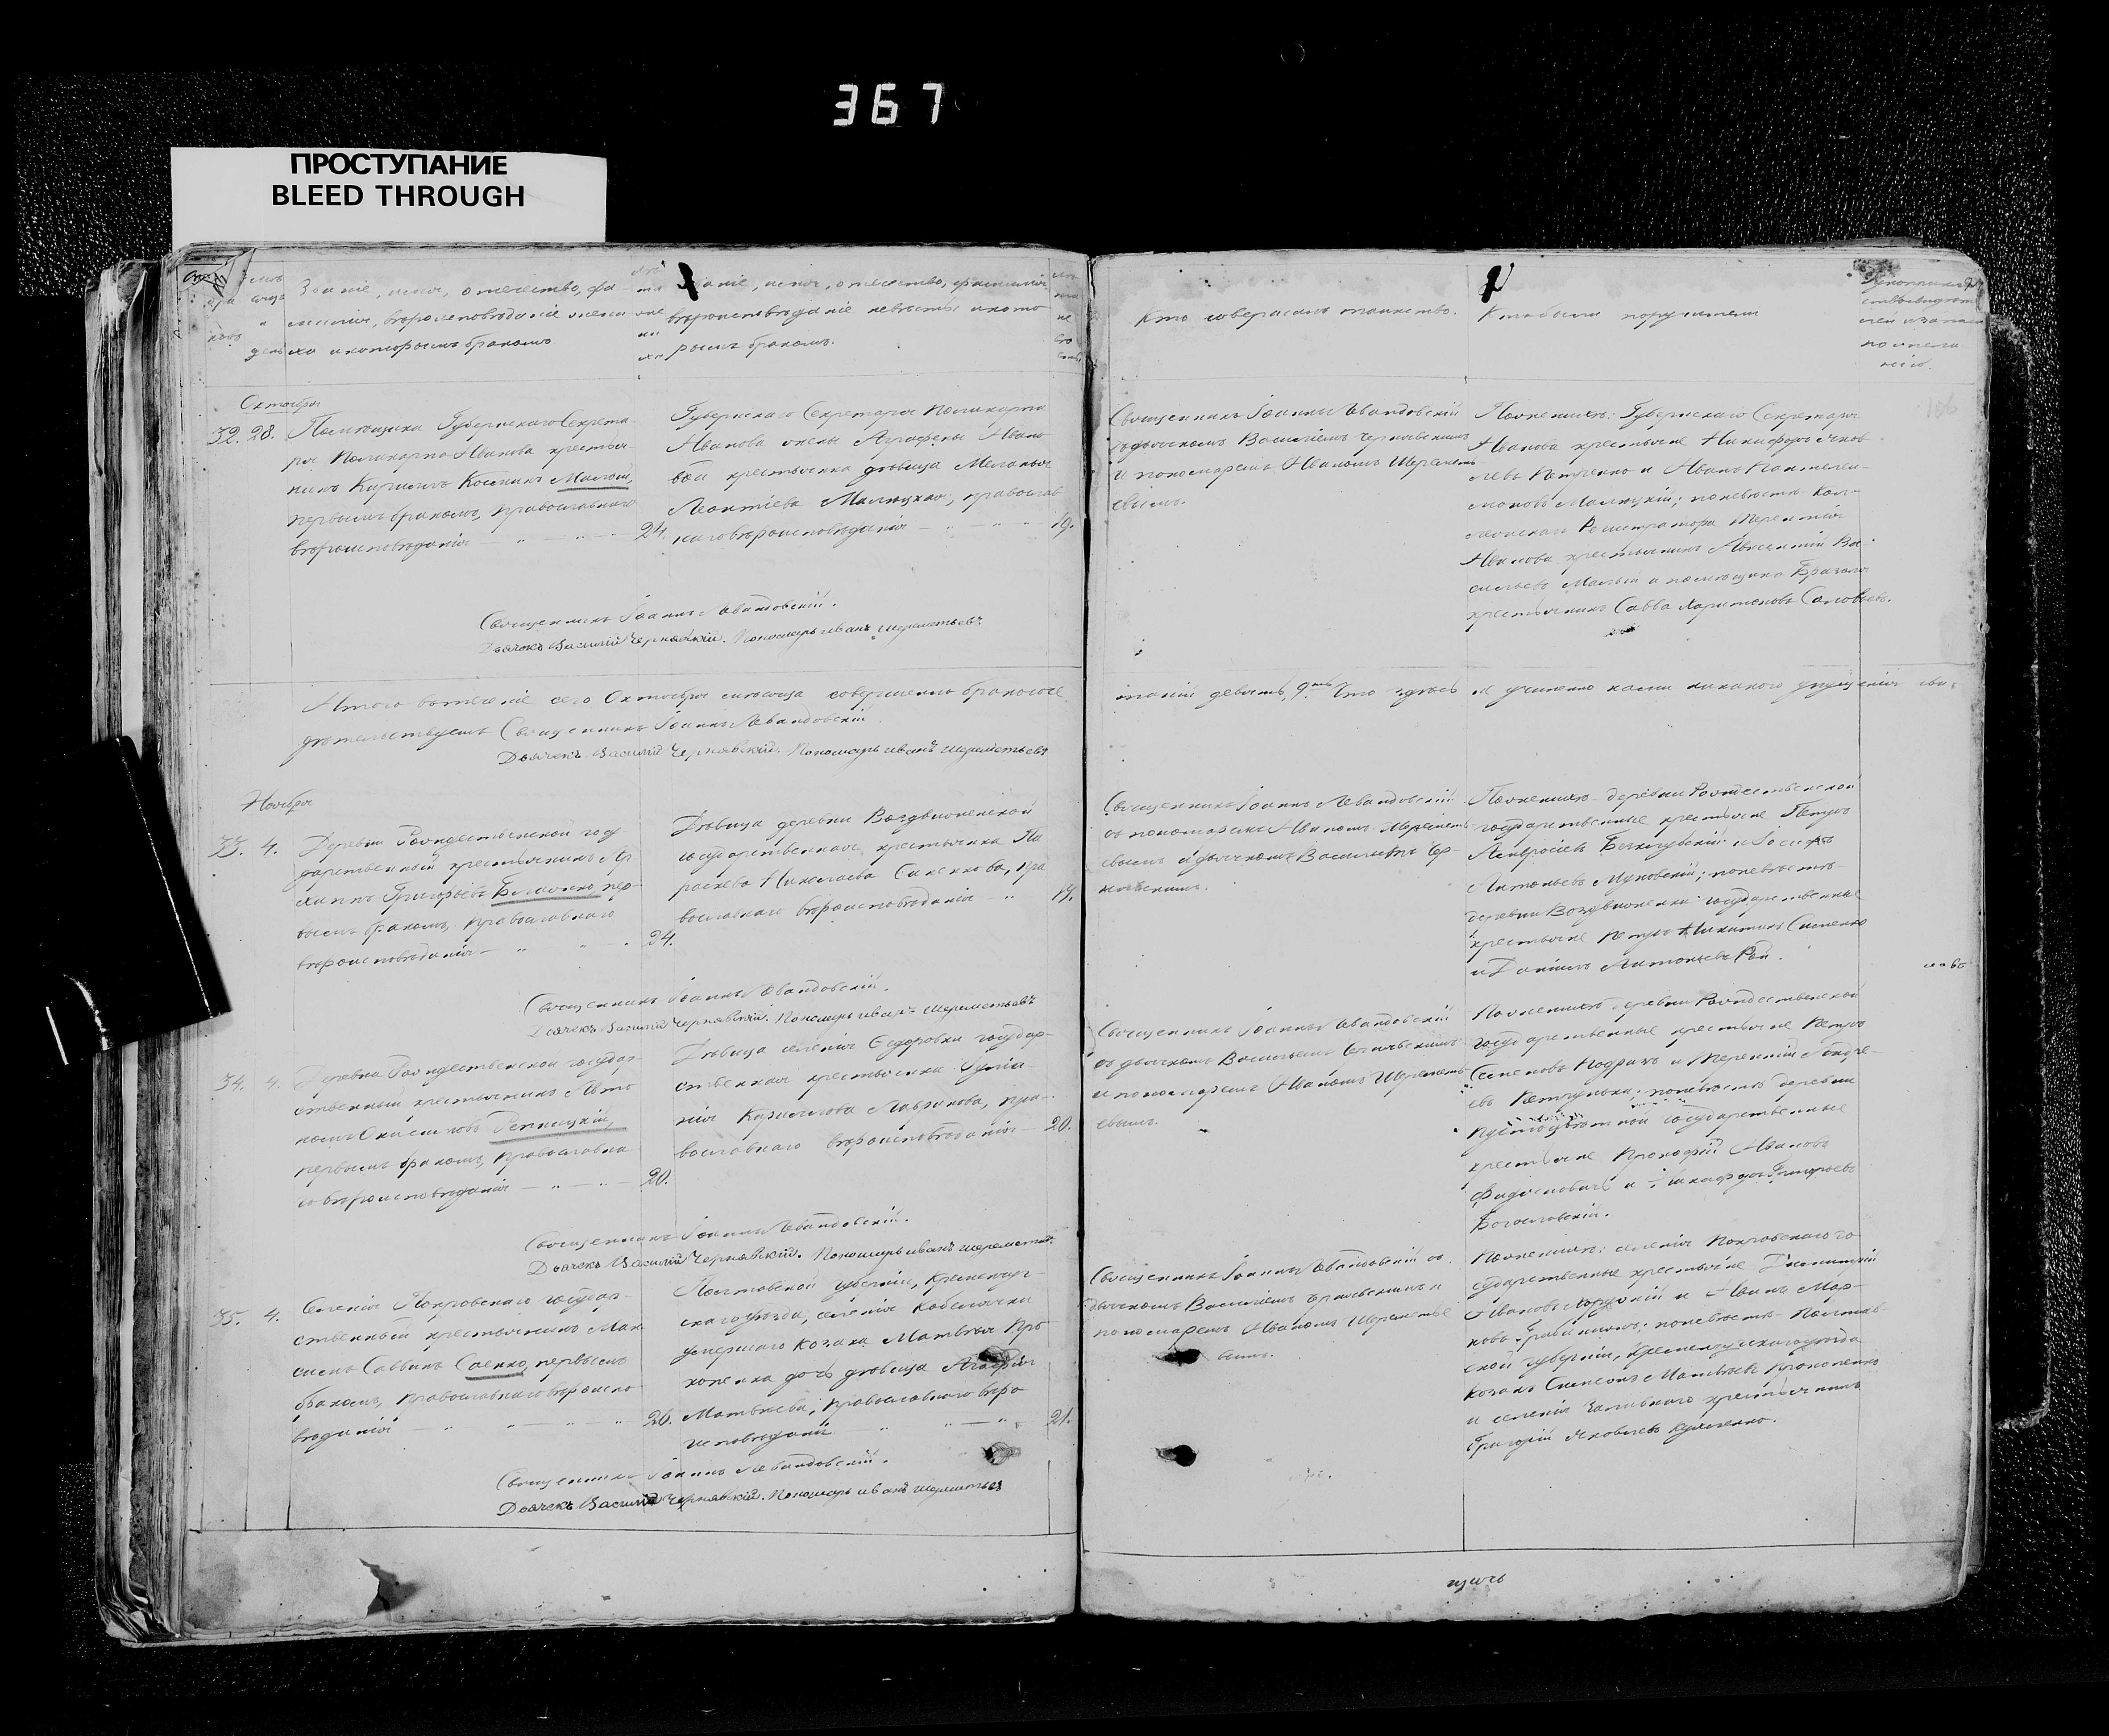 367
ПРОСТУПАНИЕ
BLEED THROUGH
Званіе, имя, отчество, фа-
милія, вѣроисповѣданіе жени
ха и которымъ бракомъ
званіе, имя, отчество, фамилія
вѣроисповѣданіе невѣсты и кото
рымъ бракомъ.
Кто совершалъ таинство.
Кто были поручители
Октября
32. 28.
Помѣщика Губернскаго Секрета-
ря Поликарпа Иванова крестья-
нинъ Кирилъ Косминъ Малый,
первымъ бракомъ, православнаго
вѣроисповѣданія 24.
Губернскаго Секретаря Поликарпа
Иванова жены Агрофены Ивано-
вой крестьянка дѣвица Меланья
Леонтіева Малюцкая, православ
наго вѣроисповѣданія 19.
Священникъ Іоаннъ Левандовскій
съ дьячкомъ Василіемъ Чернявскимъ
и пономаремъ Иваномъ Шереметь-
евымъ.
По женихѣ: Губернскаго Секретаря
Иванова крестьяне Никифоръ
и Иванъ Пантелей-
моновъ Малюцкій; по невѣстѣ Кол-
лежскаго Регистратора Терентія
Иванова крестьянинъ Авксентій Ва-
сильевъ Малый и помѣщика
крестьянинъ Савва Харитоновъ Соловьевъ.
Священникъ Іоаннъ Левандовскій.
Дьячекъ Василій Чернявскій. Пономарь иванъ шереметьевъ
Итого въ теченіе сего Октября мѣсяца совершенно бракосоче
таній девять, 9ть Что здѣсь не учинено нами никакого упущенія сви-
дѣтельствуемъ Священникъ Іоаннъ Левандовскій
Дьячекъ Василій Чернявскій. Пономарь иванъ шереметьевъ
Ноября
33. 4.
Деревни Рождественской госу
дарственный крестьянинъ Ар
хипъ Григорьевъ пер-
вымъ бракомъ, православнаго
вѣроисповѣданія 24.
Дѣвица деревни Воздвиженской
государственная крестьянка Па
раскева Николаева Синенкова, пра
вославнаго вѣроисповѣданія 19.
Священникъ Іоаннъ Левандовскій
съ пономаремъ Иваномъ Шереметь-
евымъ и дьячкомъ Василіемъ Чер-
нявскимъ.
По женихѣ деревни Рождественской
государственные крестьяне Петръ
Амвросіевъ и Іосифъ
Антоньевъ ; по невѣстѣ
деревни Воздвиженки государственные
крестьяне Петръ Никитинъ Синенко
и Даніилъ Антоньевъ Рой.
Священникъ Іоаннъ Левандовскій.
Дьячекъ Василій Чернявскій. Пономарь иванъ шереметьевъ
34. 4.
Деревни Рождественской государ-
ственный крестьянинъ Авто
номъ Онисимовъ Репницкій,
первымъ бракомъ, православна
го вѣроисповѣданія 20.
Дѣвица селенія Ѳедоровки государ-
ственная крестьянка Іулiа-
нія Кириллова Лавринова, пра-
вославнаго вѣроисповѣданія 20.
Священникъ Іоаннъ Левандовскій
съ дьячкомъ Василіемъ Чернявскимъ
и пономаремъ Иваномъ Шереметь-
евымъ.
По женихѣ деревни Рождественской
государственные крестьяне Петръ
Семеновъ и Терентій Андре-
евъ ; по невѣстѣ деревни
государственные
крестьяне Прокофій Ивановъ
и Григорьевъ
Богословскій.
Священникъ Іоаннъ Левандовскій.
Дьячекъ Василій Чернявскій. Пономарь иванъ шереметьевъ
35. 4.
Селенія Покровскаго государ-
ственный крестьянинъ Мак
симъ Саввинъ Саенко, первымъ
бракомъ, православнаго вѣроиспо
вѣданія 26.
Полтавской губерніи, Кременчуг-
скаго уѣзда, селенія Кобелячки
умершаго козака Матвѣя Про
копенка дочь дѣвица Агафія
Матвѣева, православнаго вѣро
исповѣданія 21.
Священникъ Іоаннъ Левандовскій съ
дьячкомъ Василіемъ Чернявскимъ и
пономаремъ Иваномъ Шереметье
вымъ.
По женихѣ: селенія Покровскаго го-
сударственные крестьяне Димитрій
Ивановъ и Иванъ Мар-
ковъ ; по невѣстѣ Полтав-
ской губерніи, Кременчугскаго уѣзда
козакъ Симеонъ Матвѣевъ Прокопенко
и селенія крестьянинъ
Григорій Яковлевъ
Священникъ Іоаннъ Левандовскій.
Дьячекъ Василій Чернявскій. Пономарь иванъ шереметьевъ